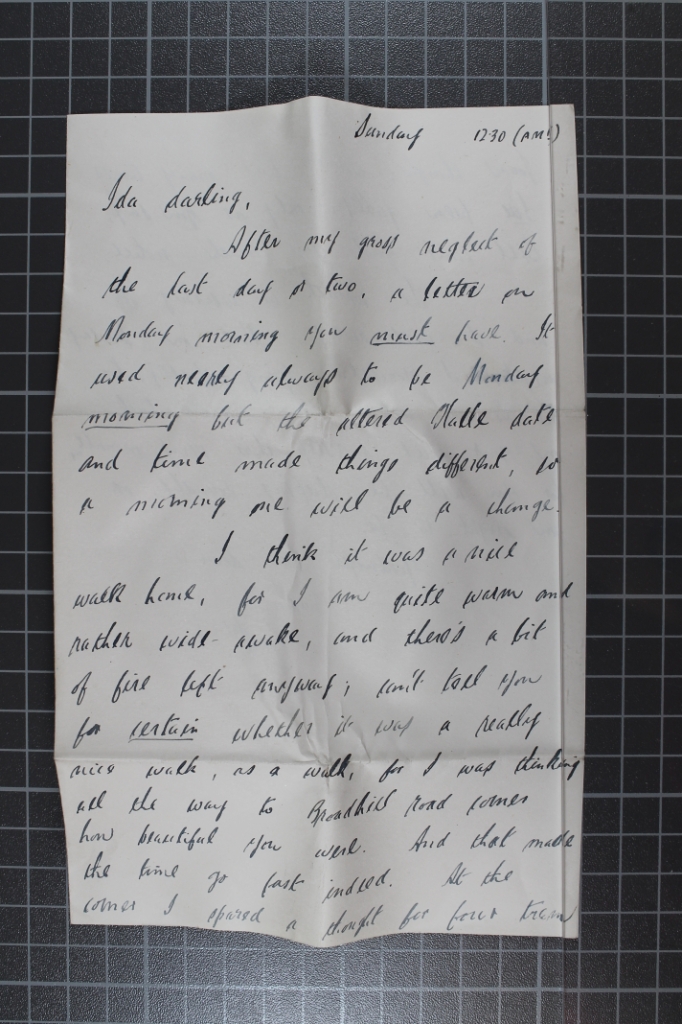 Sunday 1230 (AM!)
Ida darling,
After my gross neglect of
the last day or two, a letter on
Monday morning you must have. It
used nearly always to be Monday
morning but the altered Halle date
and time made things different, so
a morning one will be a change.
I think it was a nice
walk home, for I am quite warm and
rather wide-awake, and there's a bit
of fire left anyway; can't tell you
for certain whether it was a really
nice walk, as a walk, for I was thinking
all the way to Broadhill road corner
how beautiful you were. And that made
the time go fast indeed. At the
corner I spared a thought for four tram